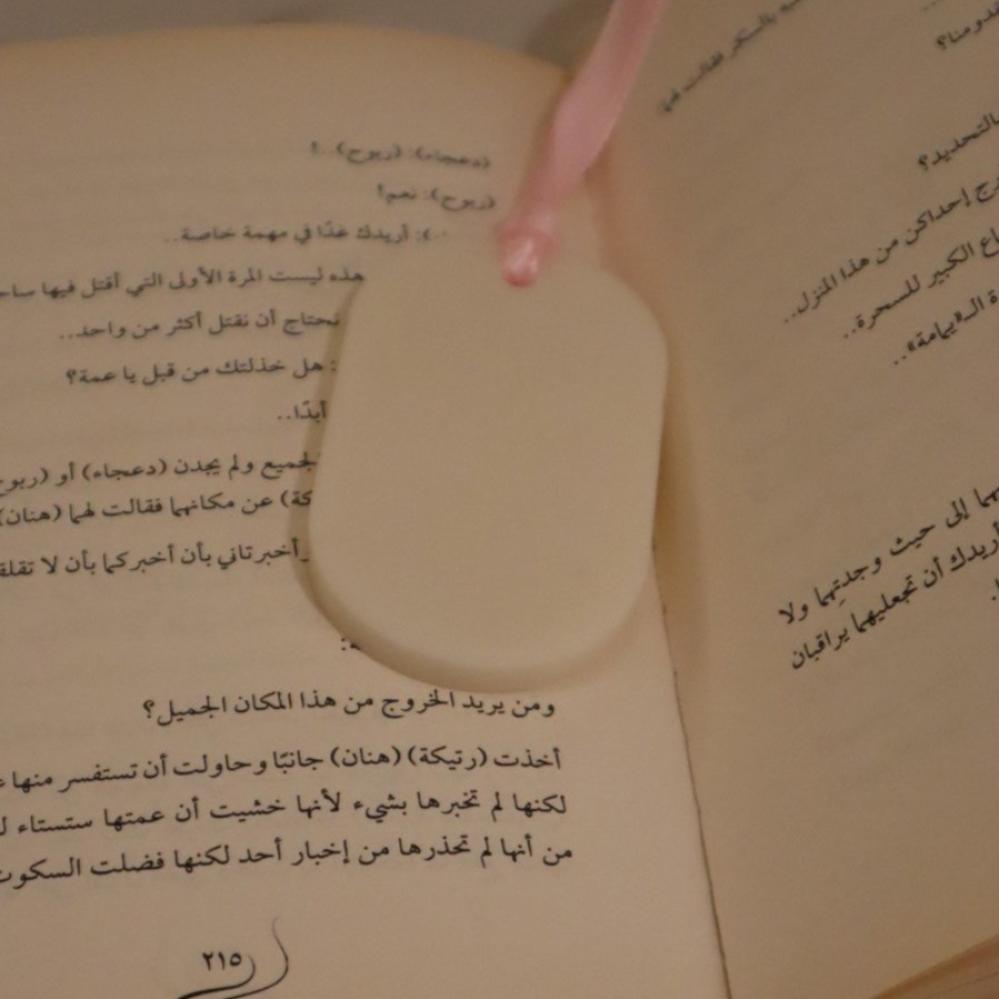 (دعجاء): (ربوح)..!
(ربوح): نعم!
أريدك غدًا في مهمة خاصة..
هذه ليست المرة الأولى التي أقتل فيها
نحتاج أن نقتل أكثر من واحد..
: هل خذلتك من قبل يا عمة؟
أبدًا..
الجميع ولم يجدن (دعجاء) أو
عن مكانهما فقالت لهما (هنان)
أخبرتاني بأن أخبركما بأن لا
ومن يريد الخروج من هذا المكان الجميل؟
أخذت (رتيكة) (هنان) جانبًا وحاولت أن تستفسر منها
لكنها لم تخبرها بشيء لأنها خشيت أن عمتها ستستاء
من أنها لم تحذرها من إخبار أحد لكنها فضلت السكوت
٢١٥
بالتحديد؟
إحداكن من هذا المنزل..
الكبير للسحرة..
الـ«يمامة»..
إلى حيث وجدتِهما ولا
أريدك أن تجعليهما يراقبان